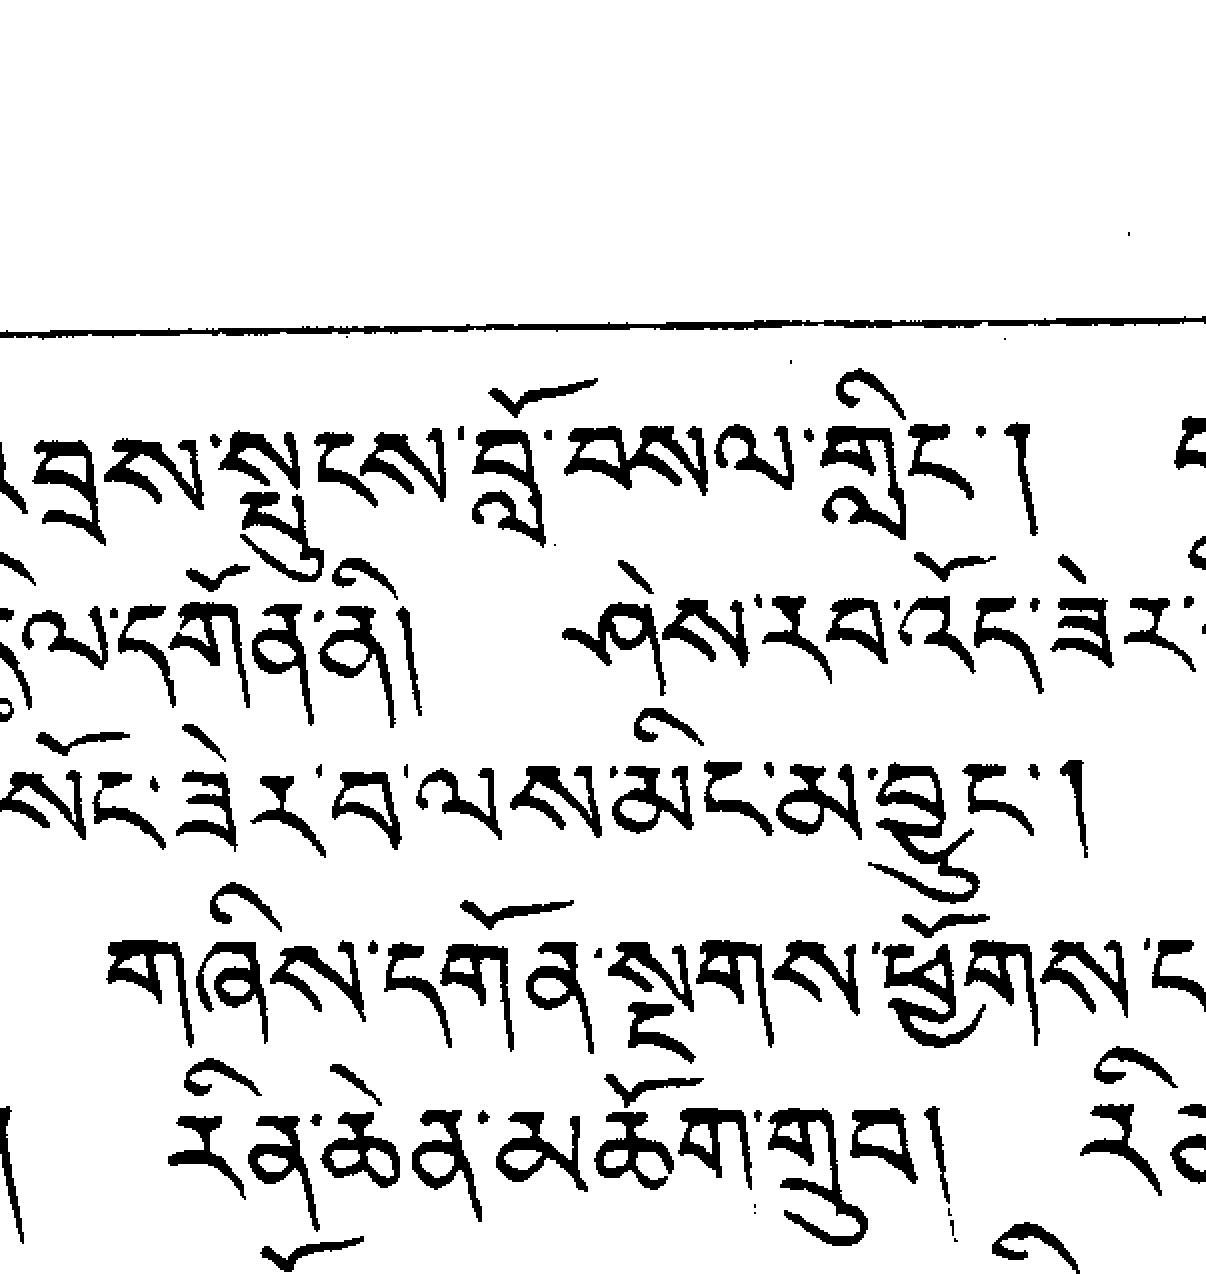 འབྲས་སྤུངས་བློ་བསལ་གླིང་།
ལ་དགོན་ནི། ཤེས་རབ་འོད་ཟེར་
སོང་ཟེར་བ་ལས་མིང་མ་བྱུང་།
གཞིས་དགོན་སྔགས་ཕྱོགས་
། རིན་ཆེན་མཆོག་གྲུབ། རིན